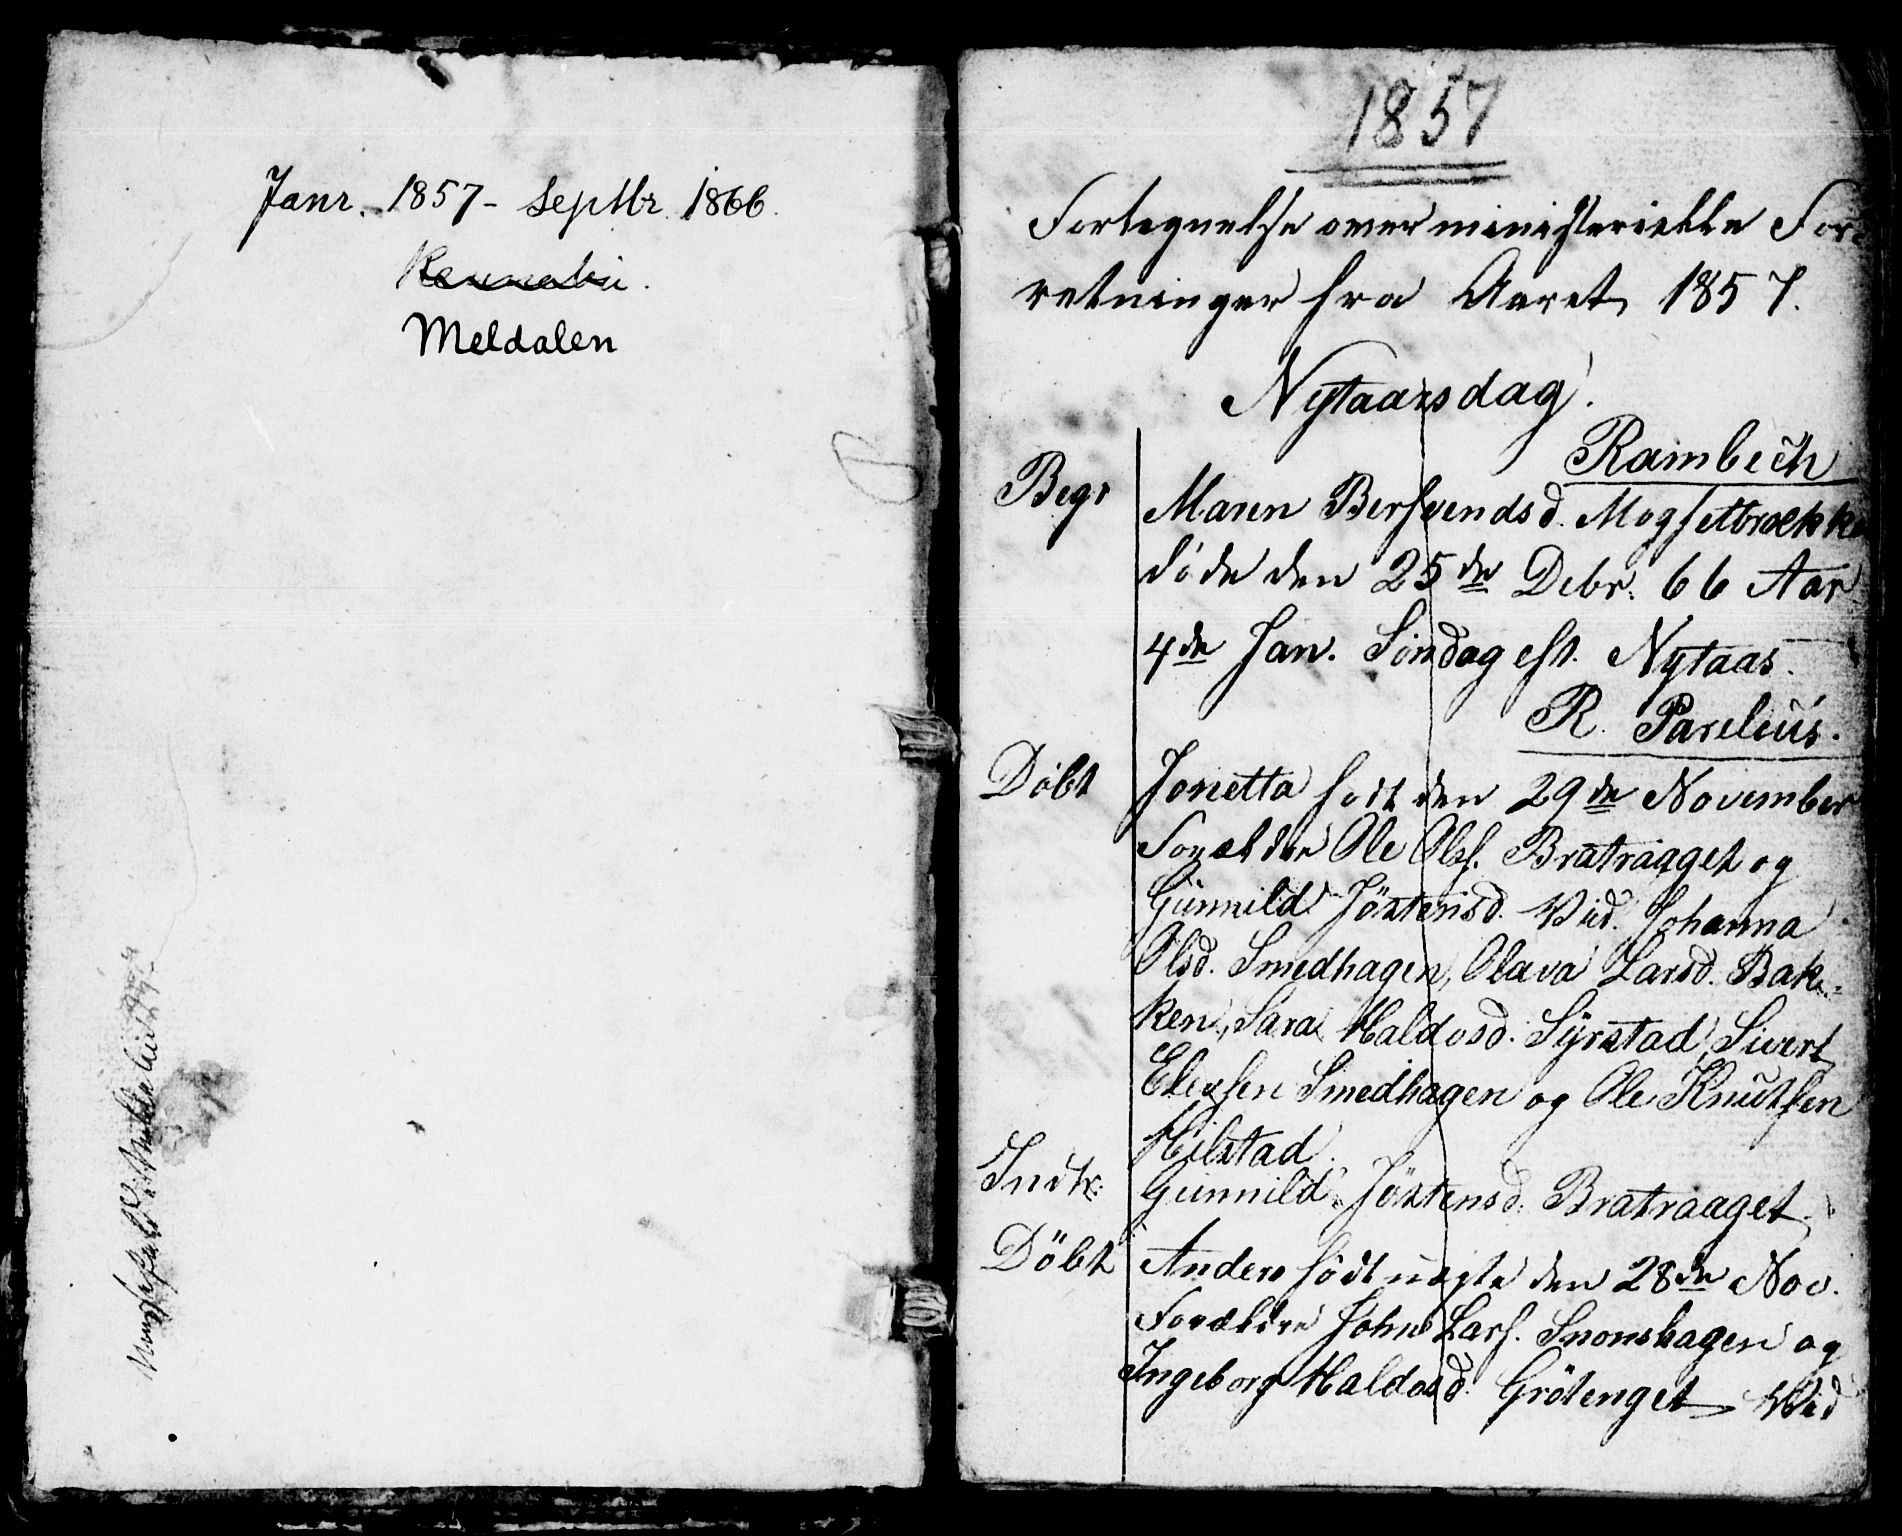 Janr. 1857 - Septbr 1866.
Meldalen
1857
Fortegnelse over ministerielle For-
retninger fra Aaret 1857.
Nytaarsdag.
Rambech
Begr Maren Bersvendsd. Mogsetbrække
døde den 25de Debr. 66 Aar
4de Jan. Søndag eft. Nytaas.
R. Parelius.
Døbt Jonetta født den 29de November
Forældre Ole Ols. Bratraaget og
Gunnild Jöstensd. Vid. Johanna
Olsd. Smedhagen, Olava Larsd. Bak-
ken, Sara Haldosd. Syrstad, Sivert
Elevsen Smedhagen og Ole Knutsen
Hilstad.
Indk: Gunnild Jöstensd. Bratraaget
Döbt Anders födt uægte den 28de Nov.
Forældre John Lars. Snorshagen og
Ingeborg Haldosd. Grötenget Vid